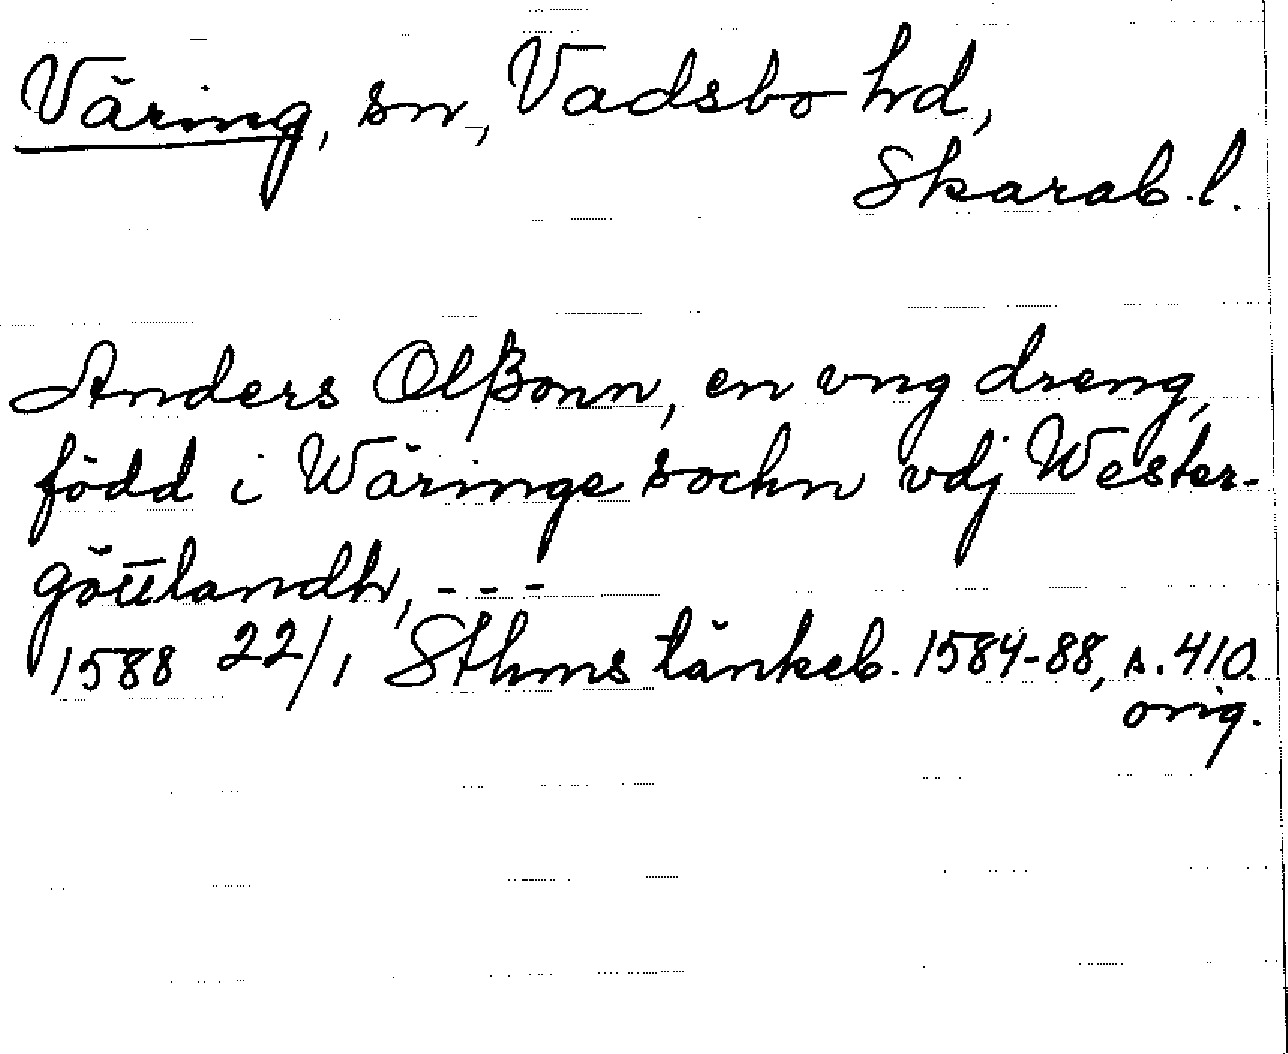 Väring, sn, Vadsbo hd,
Skarab. l.
Anders Olßonn, en vng dreng,
född i Wäringe sochn vdj Wester-
göttlandh, - - -
1588 22/1 Sthms tänkeb. 1584-88, s. 410.
orig.